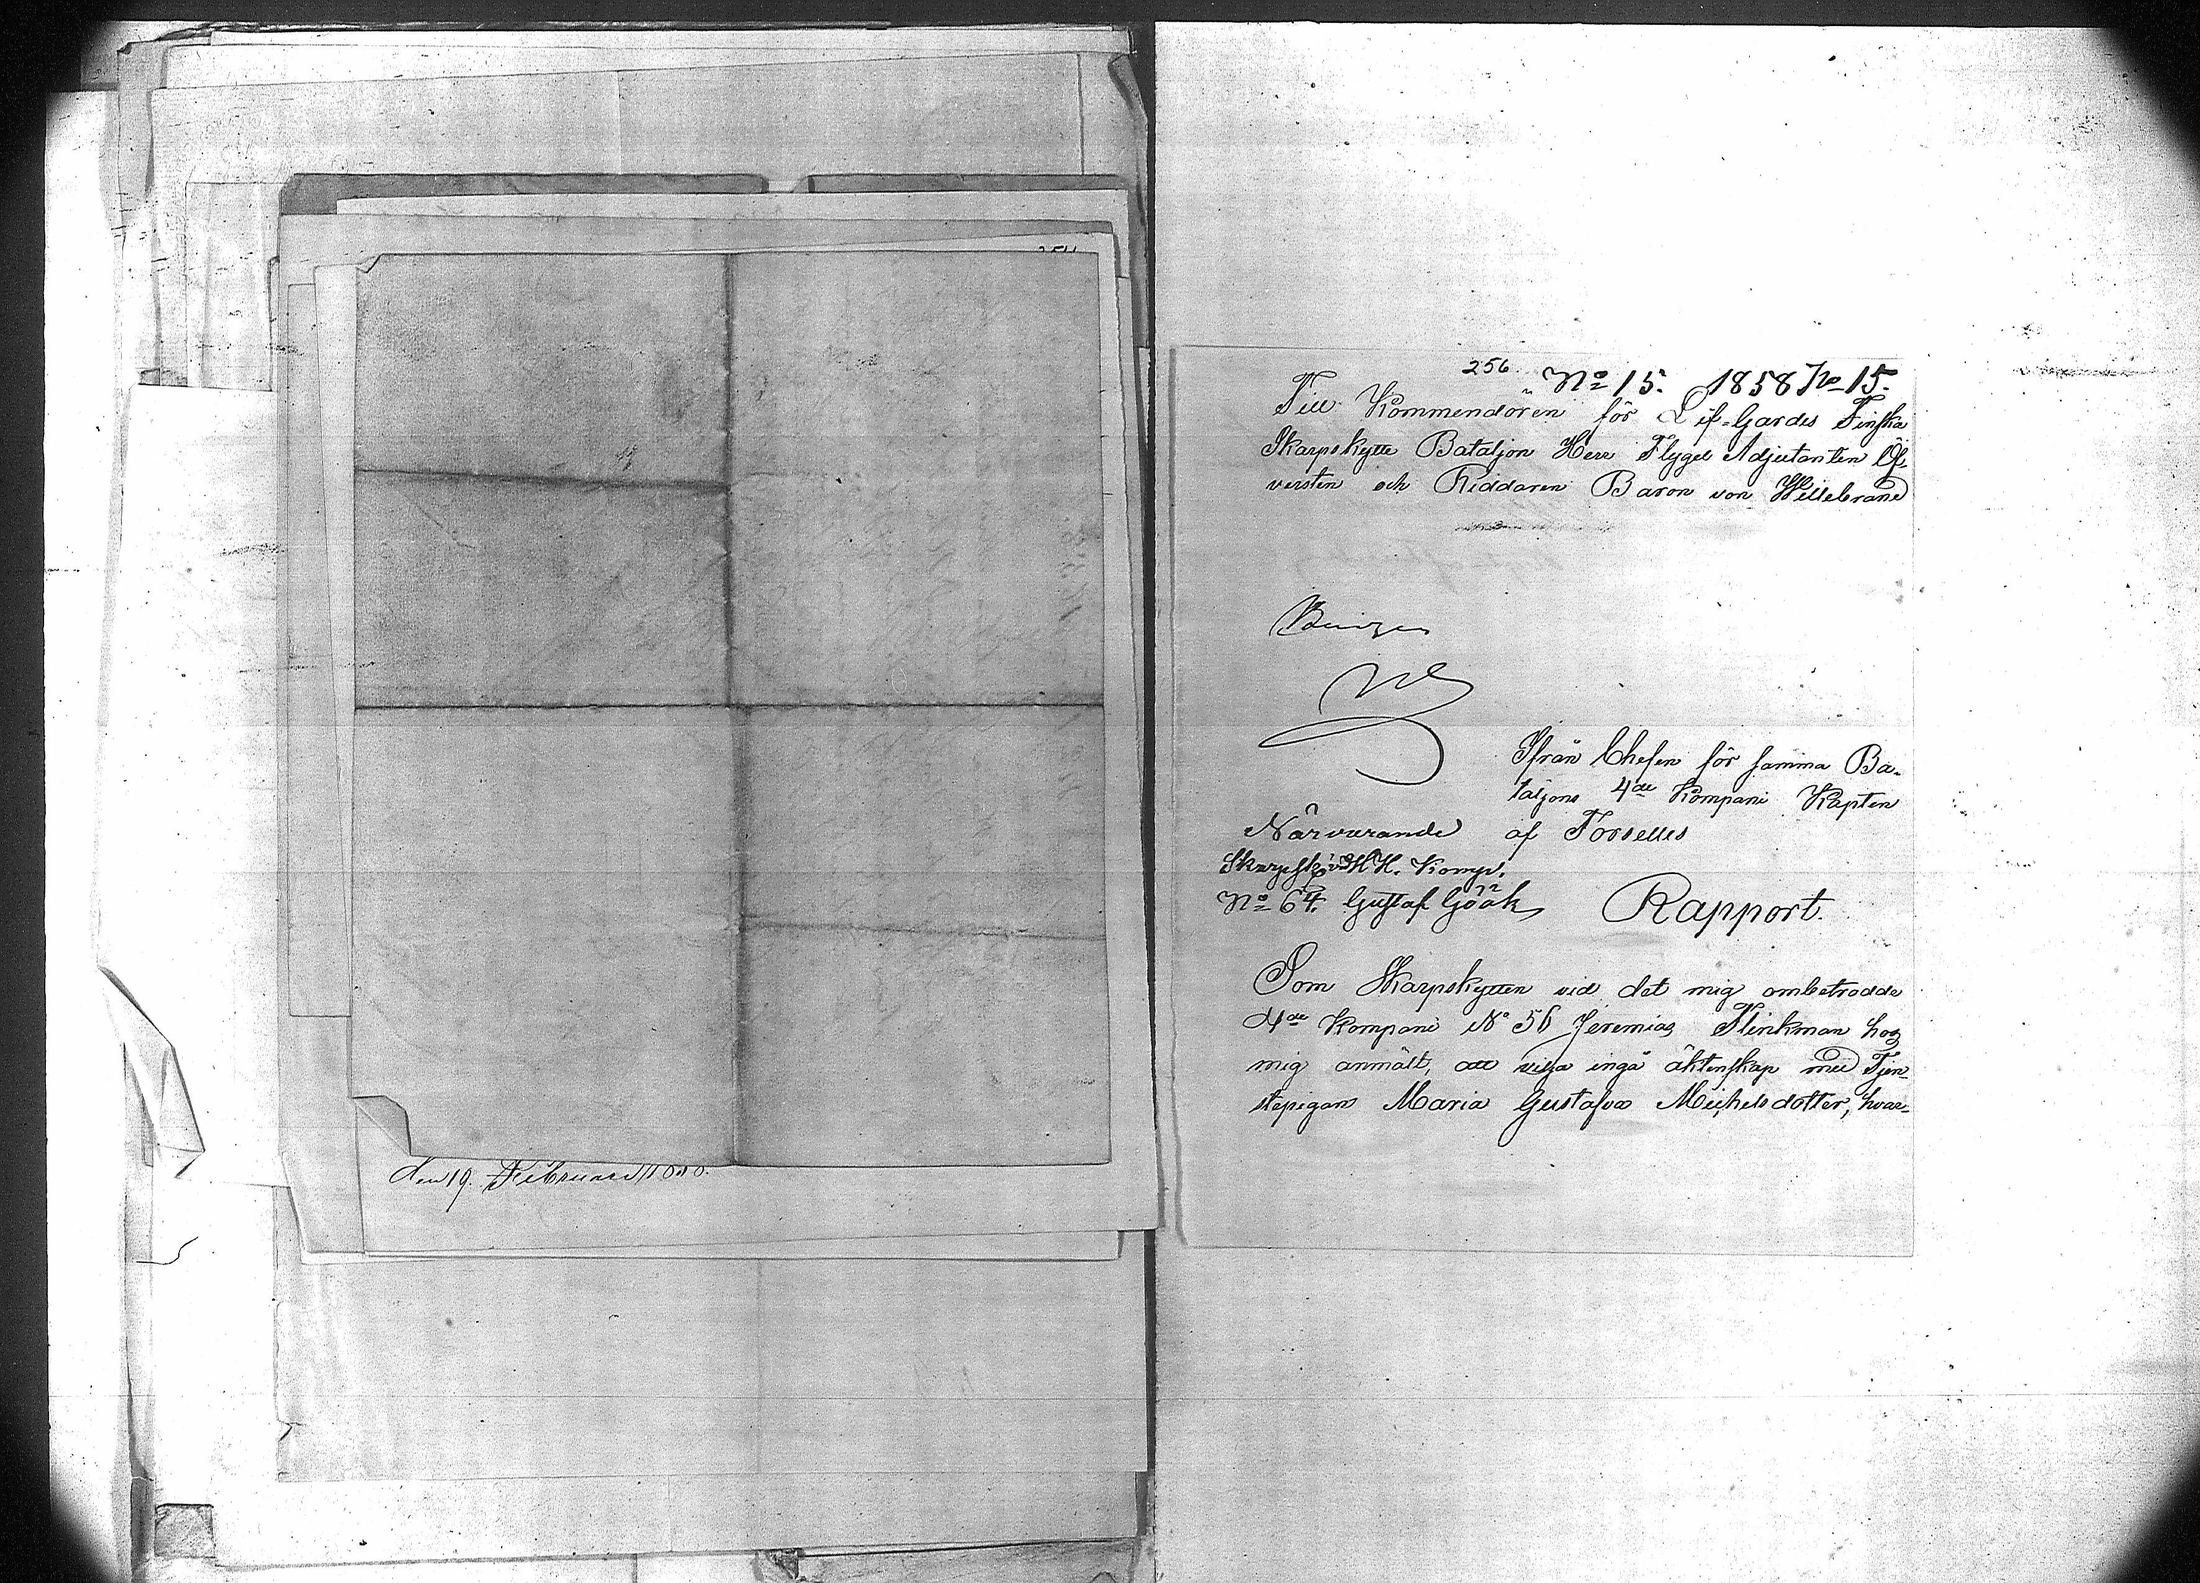 den 19. Februari
256.
No 15. 1858 No 15.
Till Kommendören för Lif-Gardes Finska
Skarpskytte Bataljon Herr Flygel Adjutanten Öf-
versten och Riddaren Baron von Willebrand
Ifrån Chefen för samma Ba-
taljons 4de Kompani Kapten
af Forselles
Närvarande
No 64. Gustaf Göök
Rapport.
Som Skarpskytten vid det mig ombetrodda
4de Kompani No 56 Jeremias Flinkman hos
mig anmält, att vilja ingå äktenskap med Tjen-
stepigan Maria Gustafva Michelsdotter, hvar-